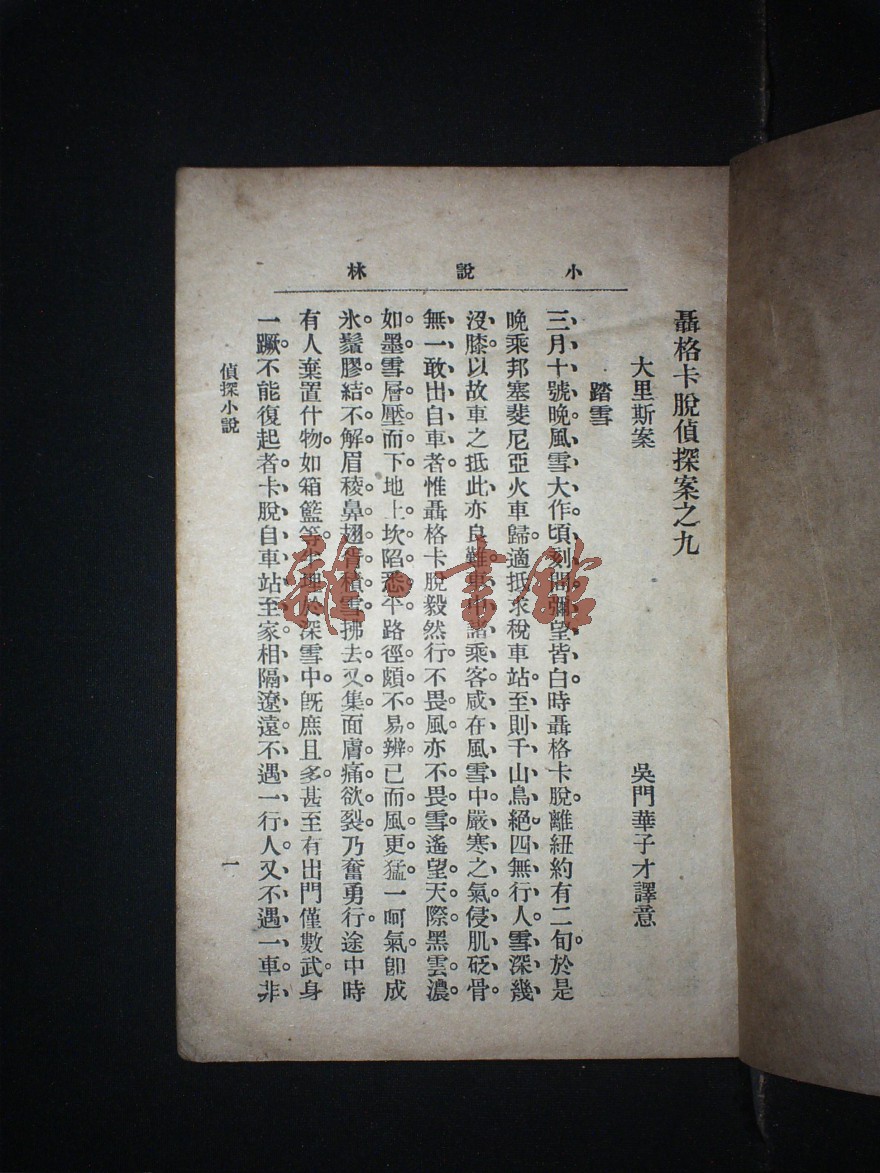 小說林
聶格卡脫偵探案之九
大里斯案　吳門華子才譯意
踏雪
三月十號晚風雪大作頃刻間彌望皆白時聶格卡脫離紐約有二旬於是
晚乘邦塞斐尼亞火車歸適抵求稅車站至則千山鳥絕四無行人雪深幾
沒膝以故車之抵此亦良難車中諸乘客咸在風雪中嚴寒之氣侵肌砭骨
無一敢出自車者惟聶格卡脫毅然行不畏風亦不畏雪遙望天際黑雲濃
如墨雪層壓而下地上坎陷悉平路徑頗不易辨已而風更猛一呵氣卽成
氷鬚膠結不解眉稜鼻翅皆積雪拂去又集面膚痛欲裂乃奮勇行途中時
有人棄置什物如箱籃等半埋於深雪中旣庶且多甚至有出門僅數武身
一蹶不能復起者卡脫自車站至家相隔遼遠不遇一行人又不遇一車非
偵探小說
一
雜·書館